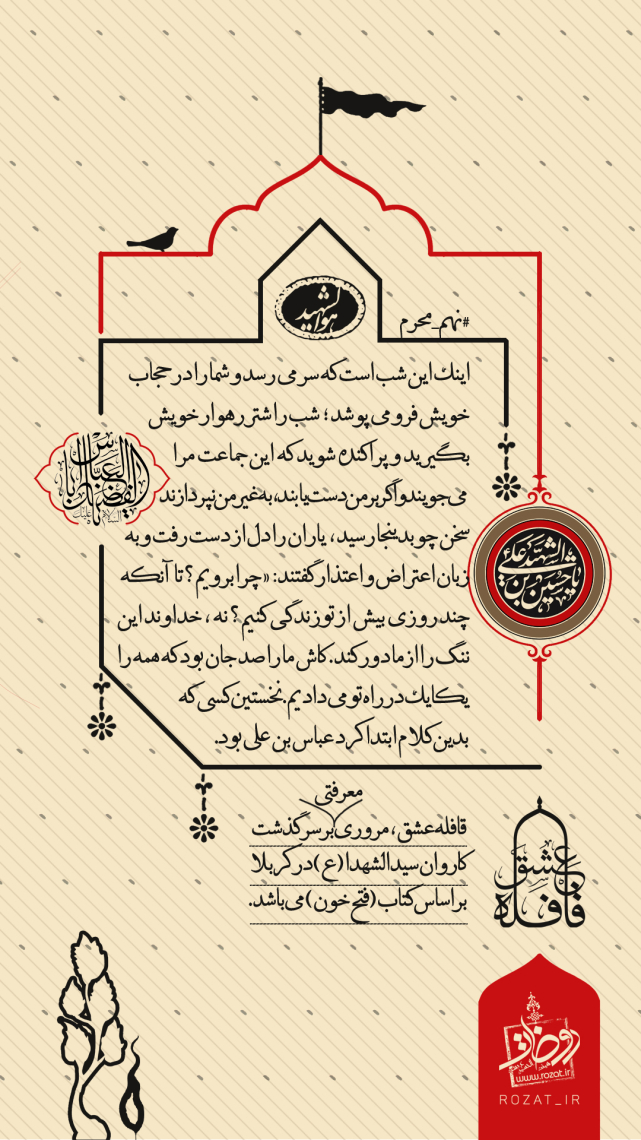 هوالشهید
#نهم_محرم
اینک این شب است که سر می رسد و شما را در حجاب
خویش فرو می پوشد؛ شب را شتر رهوار خویش
بگیرید و پراکنده شوید که این جماعت مرا
می جویند و اگر بر من دست یابند، به غیر من نپردازند
سخن چو بدینجا رسید، یاران را دل از دست رفت و به
زبان اعتراض و اعتذار گفتند: «چرا برویم؟ تا آنکه
چند روزی بیش از تو زندگی کنیم؟ نه، خداوند این
ننگ را از ما دور کند. کاش ما را صد جان بود که همه را
یکایک در راه تو می دادیم. نخستین کسی که
بدین کلام ابتدا کرد عباس بن علی بود.
یا اباالفضل العباس
علیک السلام
یا حسین بن علی الشهید
معرفتی
قافله عشق، مروری بر سرگذشت
کاروان سیدالشهدا (ع) در کربلا
بر اساس کتاب (فتح خون) می باشد.
قافله عشق
روضات
www.rozat.ir
ROZAT_IR